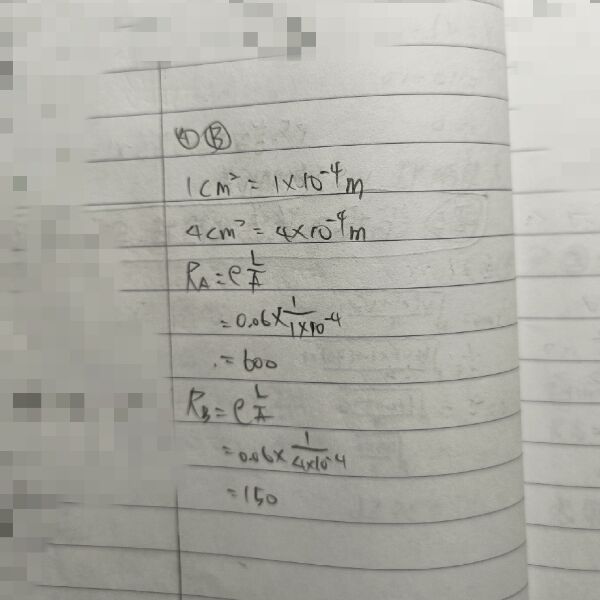 ④Ⓑ
1cm² = 1×10⁻⁴m
4cm² = 4×10⁻⁴m
R_A = ρ L/A
= 0.06 × 1/(1×10⁻⁴)
= 600
R_B = ρ L/A
= 0.06 × 1/(4×10⁻⁴)
= 150